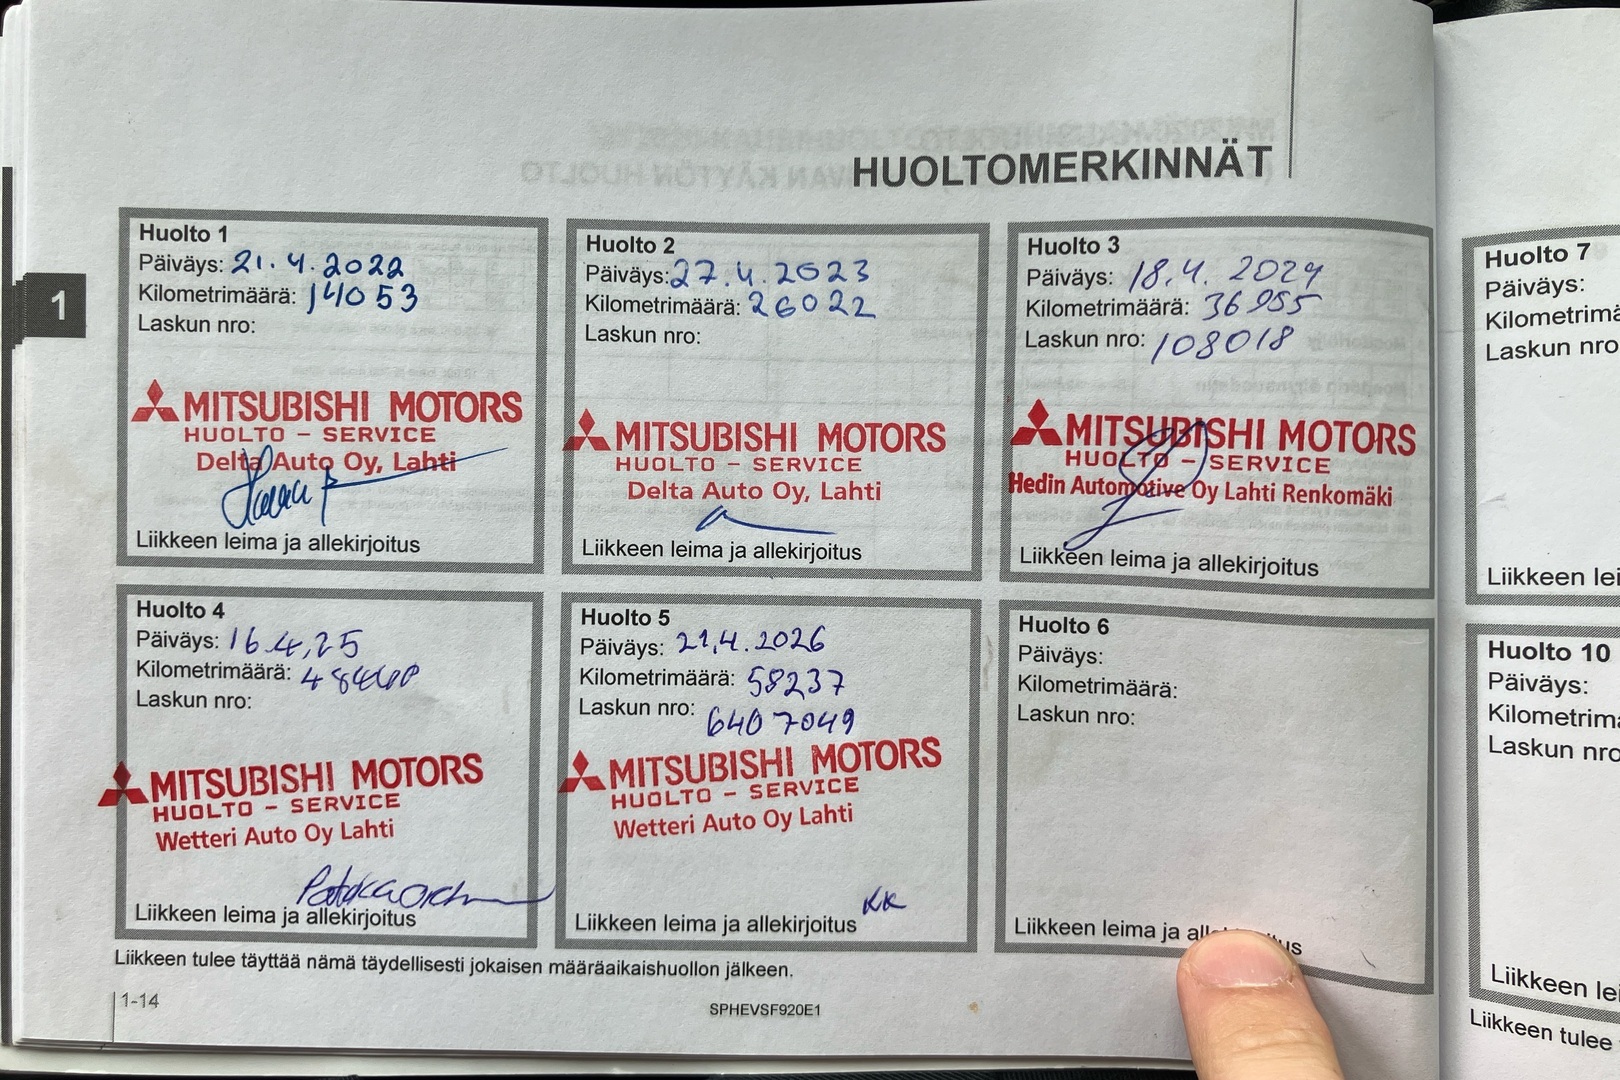 HUOLTOMERKINNÄT
1
Huolto 1
Päiväys: 21.4.2022
Kilometrimäärä: 14053
Laskun nro:
MITSUBISHI MOTORS
HUOLTO - SERVICE
Delta Auto Oy, Lahti
Liikkeen leima ja allekirjoitus
Huolto 2
Päiväys: 27.4.2023
Kilometrimäärä: 26022
Laskun nro:
MITSUBISHI MOTORS
HUOLTO - SERVICE
Delta Auto Oy, Lahti
Liikkeen leima ja allekirjoitus
Huolto 3
Päiväys: 18.4. 2024
Kilometrimäärä: 36955
Laskun nro: 108018
MITSUBISHI MOTORS
HUOLTO - SERVICE
Hedin Automotive Oy Lahti Renkomäki
Liikkeen leima ja allekirjoitus
Huolto 4
Päiväys: 16.4,25
Kilometrimäärä:
Laskun nro:
MITSUBISHI MOTORS
HUOLTO - SERVICE
Wetteri Auto Oy Lahti
Liikkeen leima ja allekirjoitus
Huolto 5
Päiväys: 21.4.2026
Kilometrimäärä: 58237
Laskun nro: 6407049
MITSUBISHI MOTORS
HUOLTO - SERVICE
Wetteri Auto Oy Lahti
KK
Liikkeen leima ja allekirjoitus
Huolto 6
Päiväys:
Kilometrimäärä:
Laskun nro:
Liikkeen leima ja
Liikkeen tulee täyttää nämä täydellisesti jokaisen määräaikaishuollon jälkeen.
1-14
SPHEVSF920E1
Huolto 7
Päiväys:
Laskun nro
Huolto 10
Päiväys:
Laskun nro
Liikkeen tulee